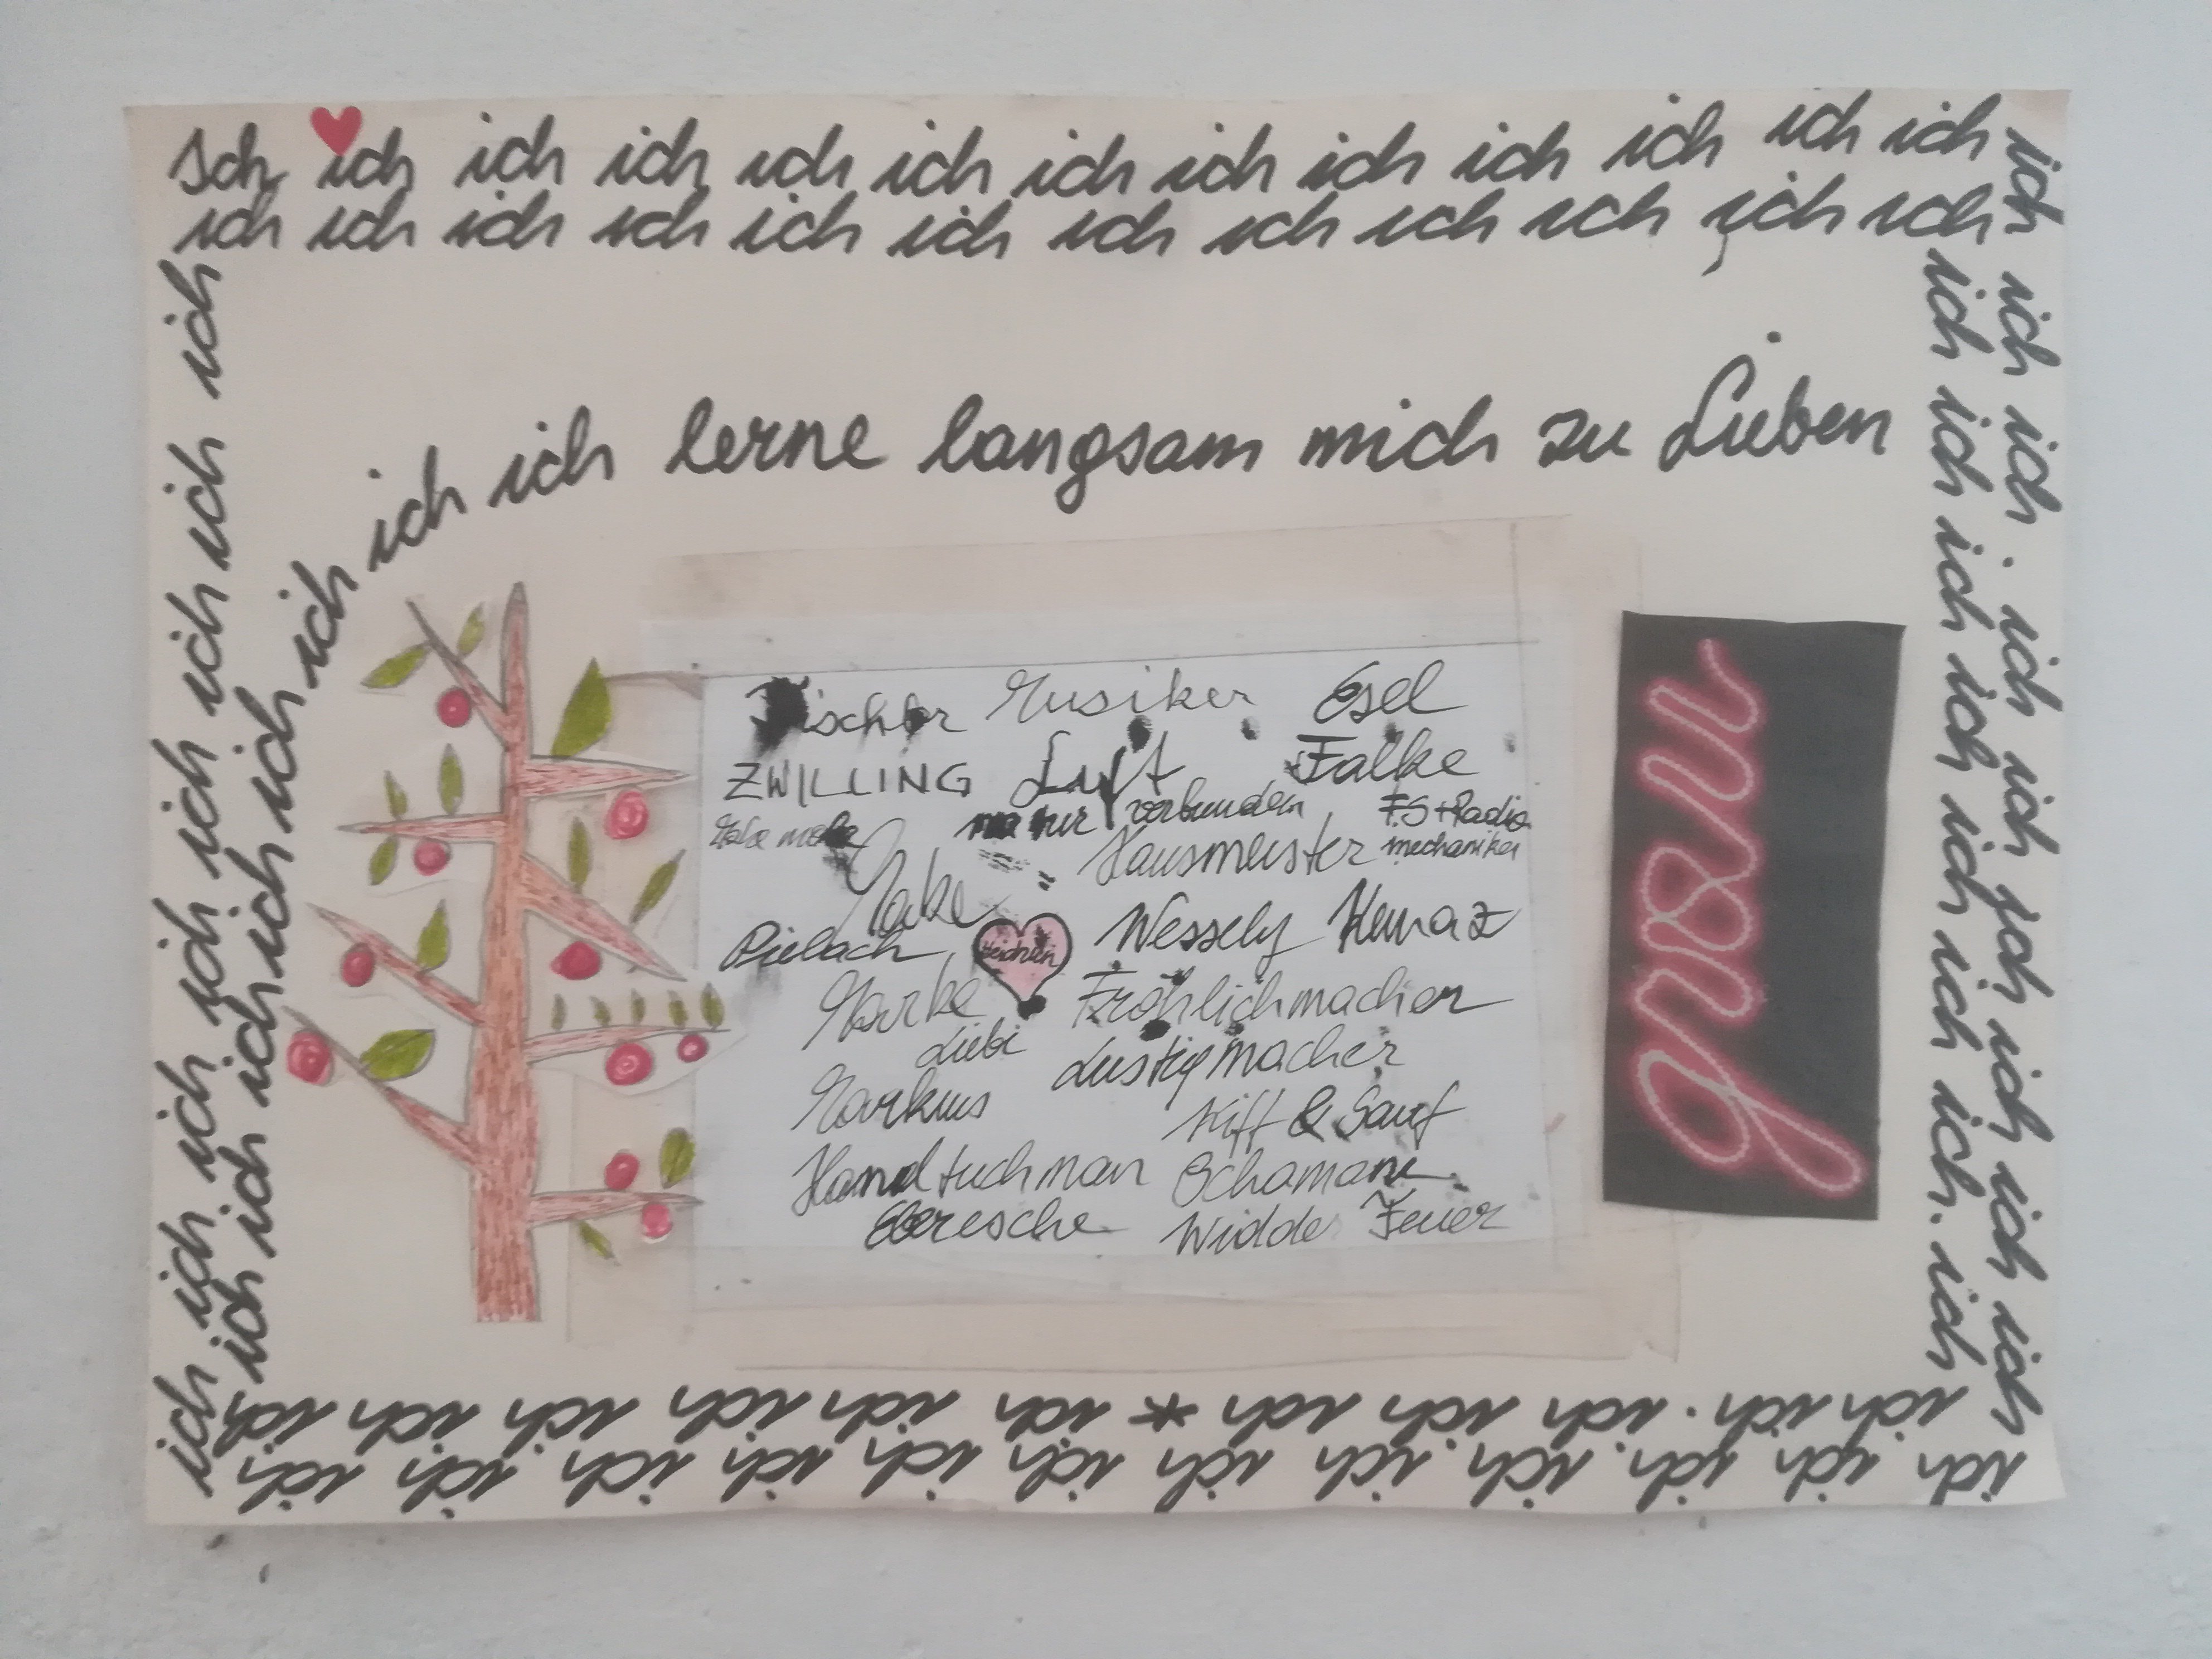 Ich ich ich ich ich ich ich ich ich ich ich ich
ich ich ich ich ich ich ich ich ich ich ich ich
ich ich ich . ich ich ich ich ich ich ich ich
ich ich ich ich ich ich ich ich. ich
ich ich . ich ich ich ich * ich ich ich ich ich ich ich ich
ich ich ich ich ich ich ich ich ich ich ich ich
ich ich ich ich ich ich ich ich ich
ich ich ich ich ich ich ich ich ich lerne langsam mich zu Lieben
Musiker Esel
ZWILLING Luft Falke
natur verbunden, FS + Radio
Hausmeister mechaniker
Make
Pielach, Wessely Kenaz
Marke Fröhlichmacher
Liebi Lustigmacher
Markus Kiff & Sauf
Handtuchman Schamane
Eberesche Widder Feuer